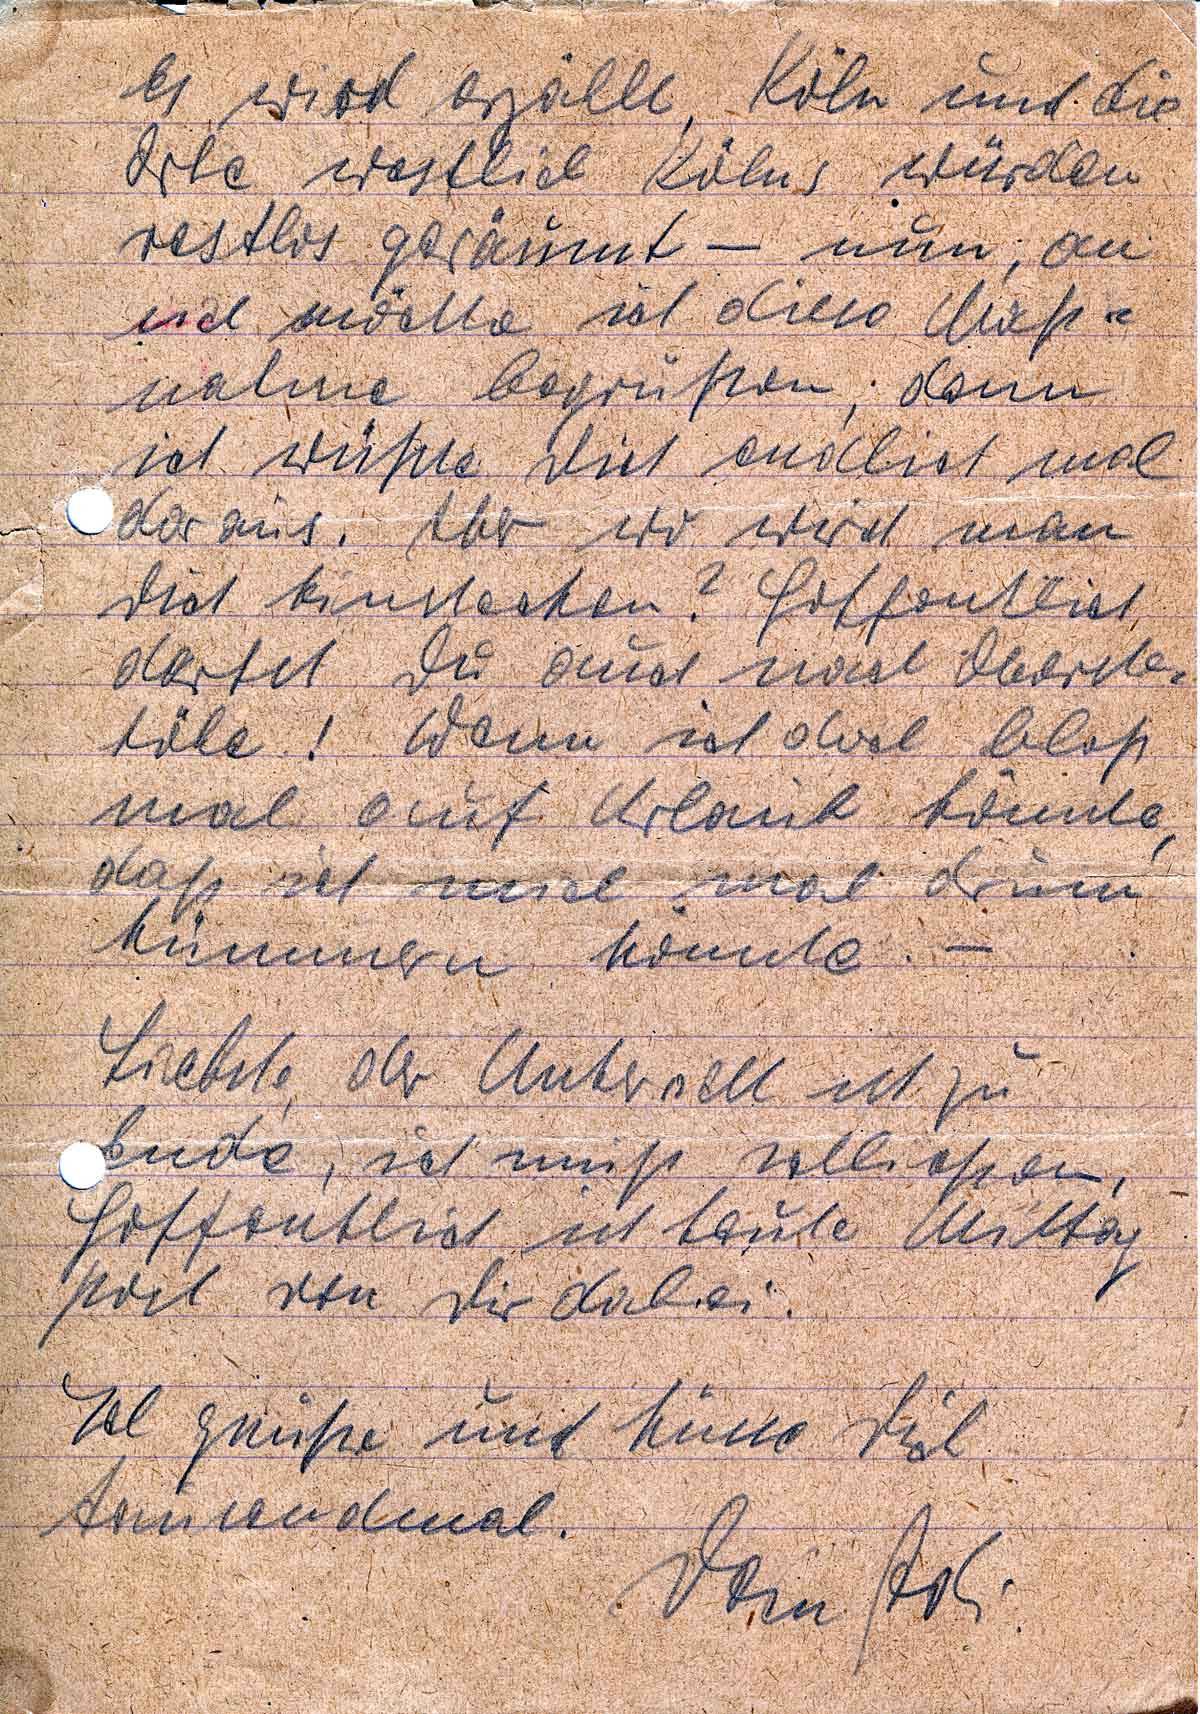 Es wird erzählt, Köln und die
Orte westlich Kölns würden
restlos geräumt – nun, an
sich möchte ich diese Maß-
nahme begrüßen, denn
ich wüßte Dich endlich mal
daraus. Aber wo wird man
Dich hinstecken? Hoffentlich
darfst Du auch nach
! Wenn ich doch bloß
mal auf Urlaub könnte,
daß ich mich mal drum
kümmern könnte. –
Liebste, der Unterricht ist zu
Ende, ich muß schließen,
Hoffentlich ist heute Mittag
Post von Dir dabei.
Ich grüße und küsse Dich
tausendmal.
Dein